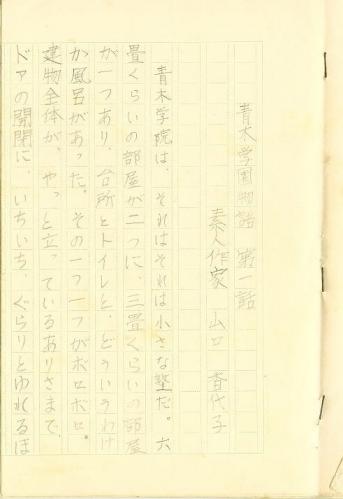 青木学園物語　第一話
素人作家　山口　香代子
青木学院は、それはそれは小さな塾だ。六
畳くらいの部屋が二つに、三畳くらいの部屋
が一つあり、台所とトイレと、どういうわけ
か風呂があった。その一つ一つがボロボロ。
建物全体が、やっと立っているありさまで、
ドアの開閉に、いちいち、ぐらりとゆれるほ